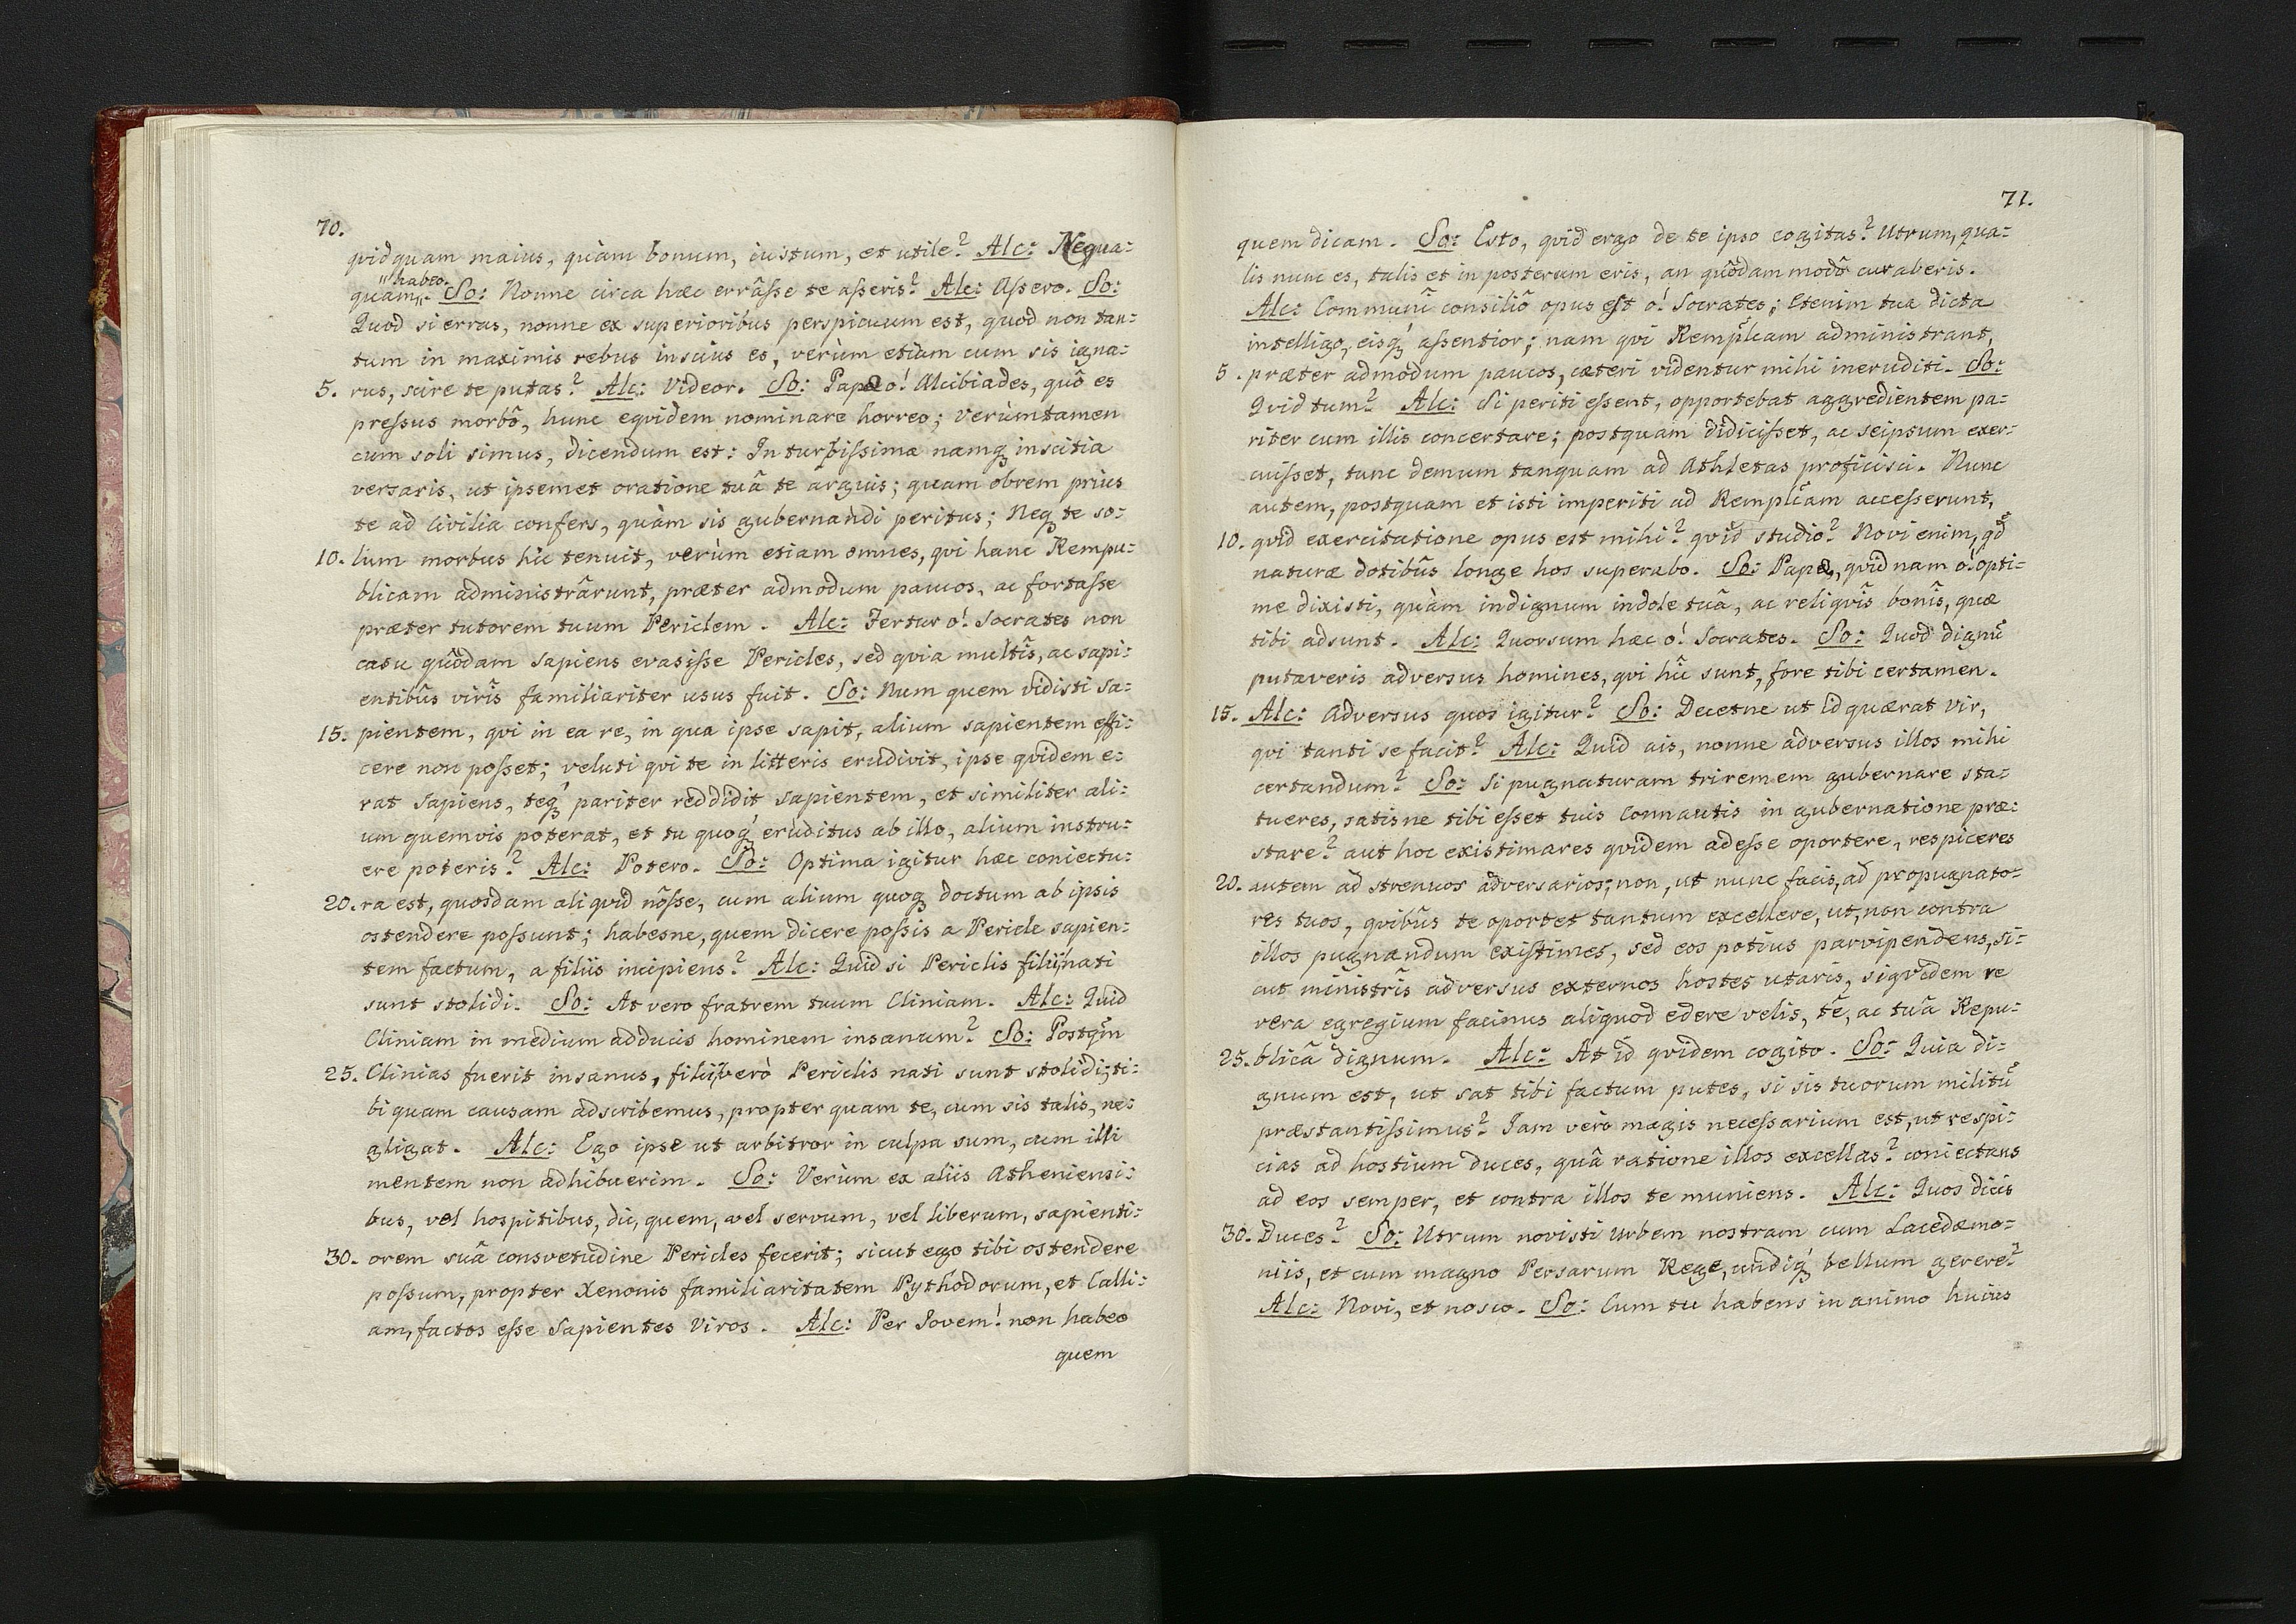 70.
qvidquam maius, quàm bonum, iustum, et utile? Alc: Nequa:
"habeo.
quam„. So: Nonne circa hæc errâsse te asseris? Alc: Assero. So:
Quod si erras, nonne ex superioribus perspicuum est, quod non tan:
tum in maximis rebus inscius es, verùm etiam cum sis igna:
5. rus, scire te putas? Alc: Videor. So: Papæ o! Alcibiades, quô es
pressus morbô, hunc eqvidem nominare horreo; verùmtamen
cum soli simus, dicendum est: In turpissima namq; inscitia
versaris, ut ipsemet oratione tuâ te arguis; quam obrem prius
te ad Civilia confers, quàm sis gubernandi peritus; Neq; te so:
10. lum morbus hic tenuit, verùm etiam omnes, qvi hanc Rempu:
blicam administrârunt, præter admodum paucos, ac fortasse
præter tutorem tuum Periclem. Alc: Fertur o! Socrates non
casu quôdam sapiens evasisse Pericles, sed qvia multîs, ac sapi:
entibûs virîs familiariter usus fuit. So: Num quem vidisti sa:
15. pientem, qvi in ea re, in qua ipse sapit, alium sapientem effi:
cere non posset; veluti qvi te in litteris erudivit, ipse qvidem e:
rat sapiens, teq; pariter reddidit sapientem, et similiter ali:
um quemvis poterat, et tu quoq; eruditus ab illo, alium instru:
ere poteris? Alc: Potero. So: Optima igitur hæc coniectu:
20. ra est, quosdam aliqvid nôsse, cum alium quoq; doctum ab ipsis
ostendere possunt; habesne, quem dicere possis a Pericle sapien:
tem factum, a filiis incipiens? Alc: Quid si Periclis filii nati
sunt stolidi. So: At vero fratrem tuum Cliniam. Alc: Quid
Cliniam in medium adducis hominem insanum? So: Postqm̃
25. Clinias fuerit insanus, filii verò Periclis nati sunt stolidi; ti:
bi quam causam adscribemus, propter quam te, cum sis talis, ne:
gligat. Alc: Ego ipse ut arbitror in culpa sum, cum illi
mentem non adhibuerim. So: Verùm ex aliis Atheniensi:
bus, vel hospitibus, dic, quem, vel servum, vel liberum, sapienti:
30. orem suâ consvetudine Pericles fecerit; sicut ego tibi ostendere
possum, propter Xenonis familiaritatem Pythodorum, et Calli:
am, factos esse Sapientes Viros. Alc: Per Jovem! non habeo
quem
71.
quem dicam. So: Esto, qvid ergo de te ipso cogitas? Utrum, qua:
lis nunc es, talis et in posterum eris, an quôdam modô curaberis.
Alc: Communî consiliô opus est o! Socrates; Etenim tua dicta
intelligo, eisq; assentior; nam qvi Remplc̃am administrant,
5. præter admodum paucos, cæteri videntur mihi ineruditi. So:
Qvid tum? Alc: Si periti essent, opportebat aggredientem pa:
riter cum illis concertare; postquam didicisset, ac seipsum exer:
cuisset, tunc demum tanquam ad Athletas proficisci. Nunc
autem, postquam et isti imperiti ad Remplc̃am accesserunt,
10. qvid exercitatione opus est mihi? qvid studio? Novi enim, qd̃
naturæ dotibûs longe hos superabo. So: Papæ, qvid nam o! opti:
me dixisti, quàm indignum indole tuâ, ac reliqvîs bonîs, quæ
tibi adsunt. Alc: Quorsum hæc o! Socrates. So: Quod dignũ
putaveris adversus homines, qvi hîc sunt, fore tibi certamen.
15. Alc: Adversus quos igitur? So: Decetne ut id quærat vir,
qvi tanti se facit? Alc: Quid ais, nonne adversus illos mihi
certandum? So: Si pugnaturam triremem gubernare sta:
tueres, satisne tibi esset tuis Connautis in gubernatione præ:
stare? aut hoc existimares qvidem adesse oportere, respiceres
20. autem ad strenuos adversarios; non, ut nunc facis, ad propugnato:
res tuos, qvibûs te oportet tantum excellere, ut, non contra
illos pugnandum existimes, sed eos potius parvipendens, si:
cut ministrîs adversus externos hostes utaris, siqvidem re
vera egregium facinus aliquod edere velis, tê, ac tuâ Repu:
25. blicâ dignum. Alc: At id qvidem cogito. So: Quia di:
gnum est, ut sat tibi factum putes, si sis tuorum militũ
præstantissimus? Jam verò magis necessarium est, ut respi:
cias ad hostium duces, quâ ratione illos excellas? coniectans
ad eos semper, et contra illos te muniens. Alc: Quos dicis
30. Duces? So: Utrum novisti Urbem nostram cum Lacedæmo:
niis, et cum magno Persarum Rege, undiq; bellum gerere?
Alc: Novi, et nosco. So: Cum tu habens in animo huius